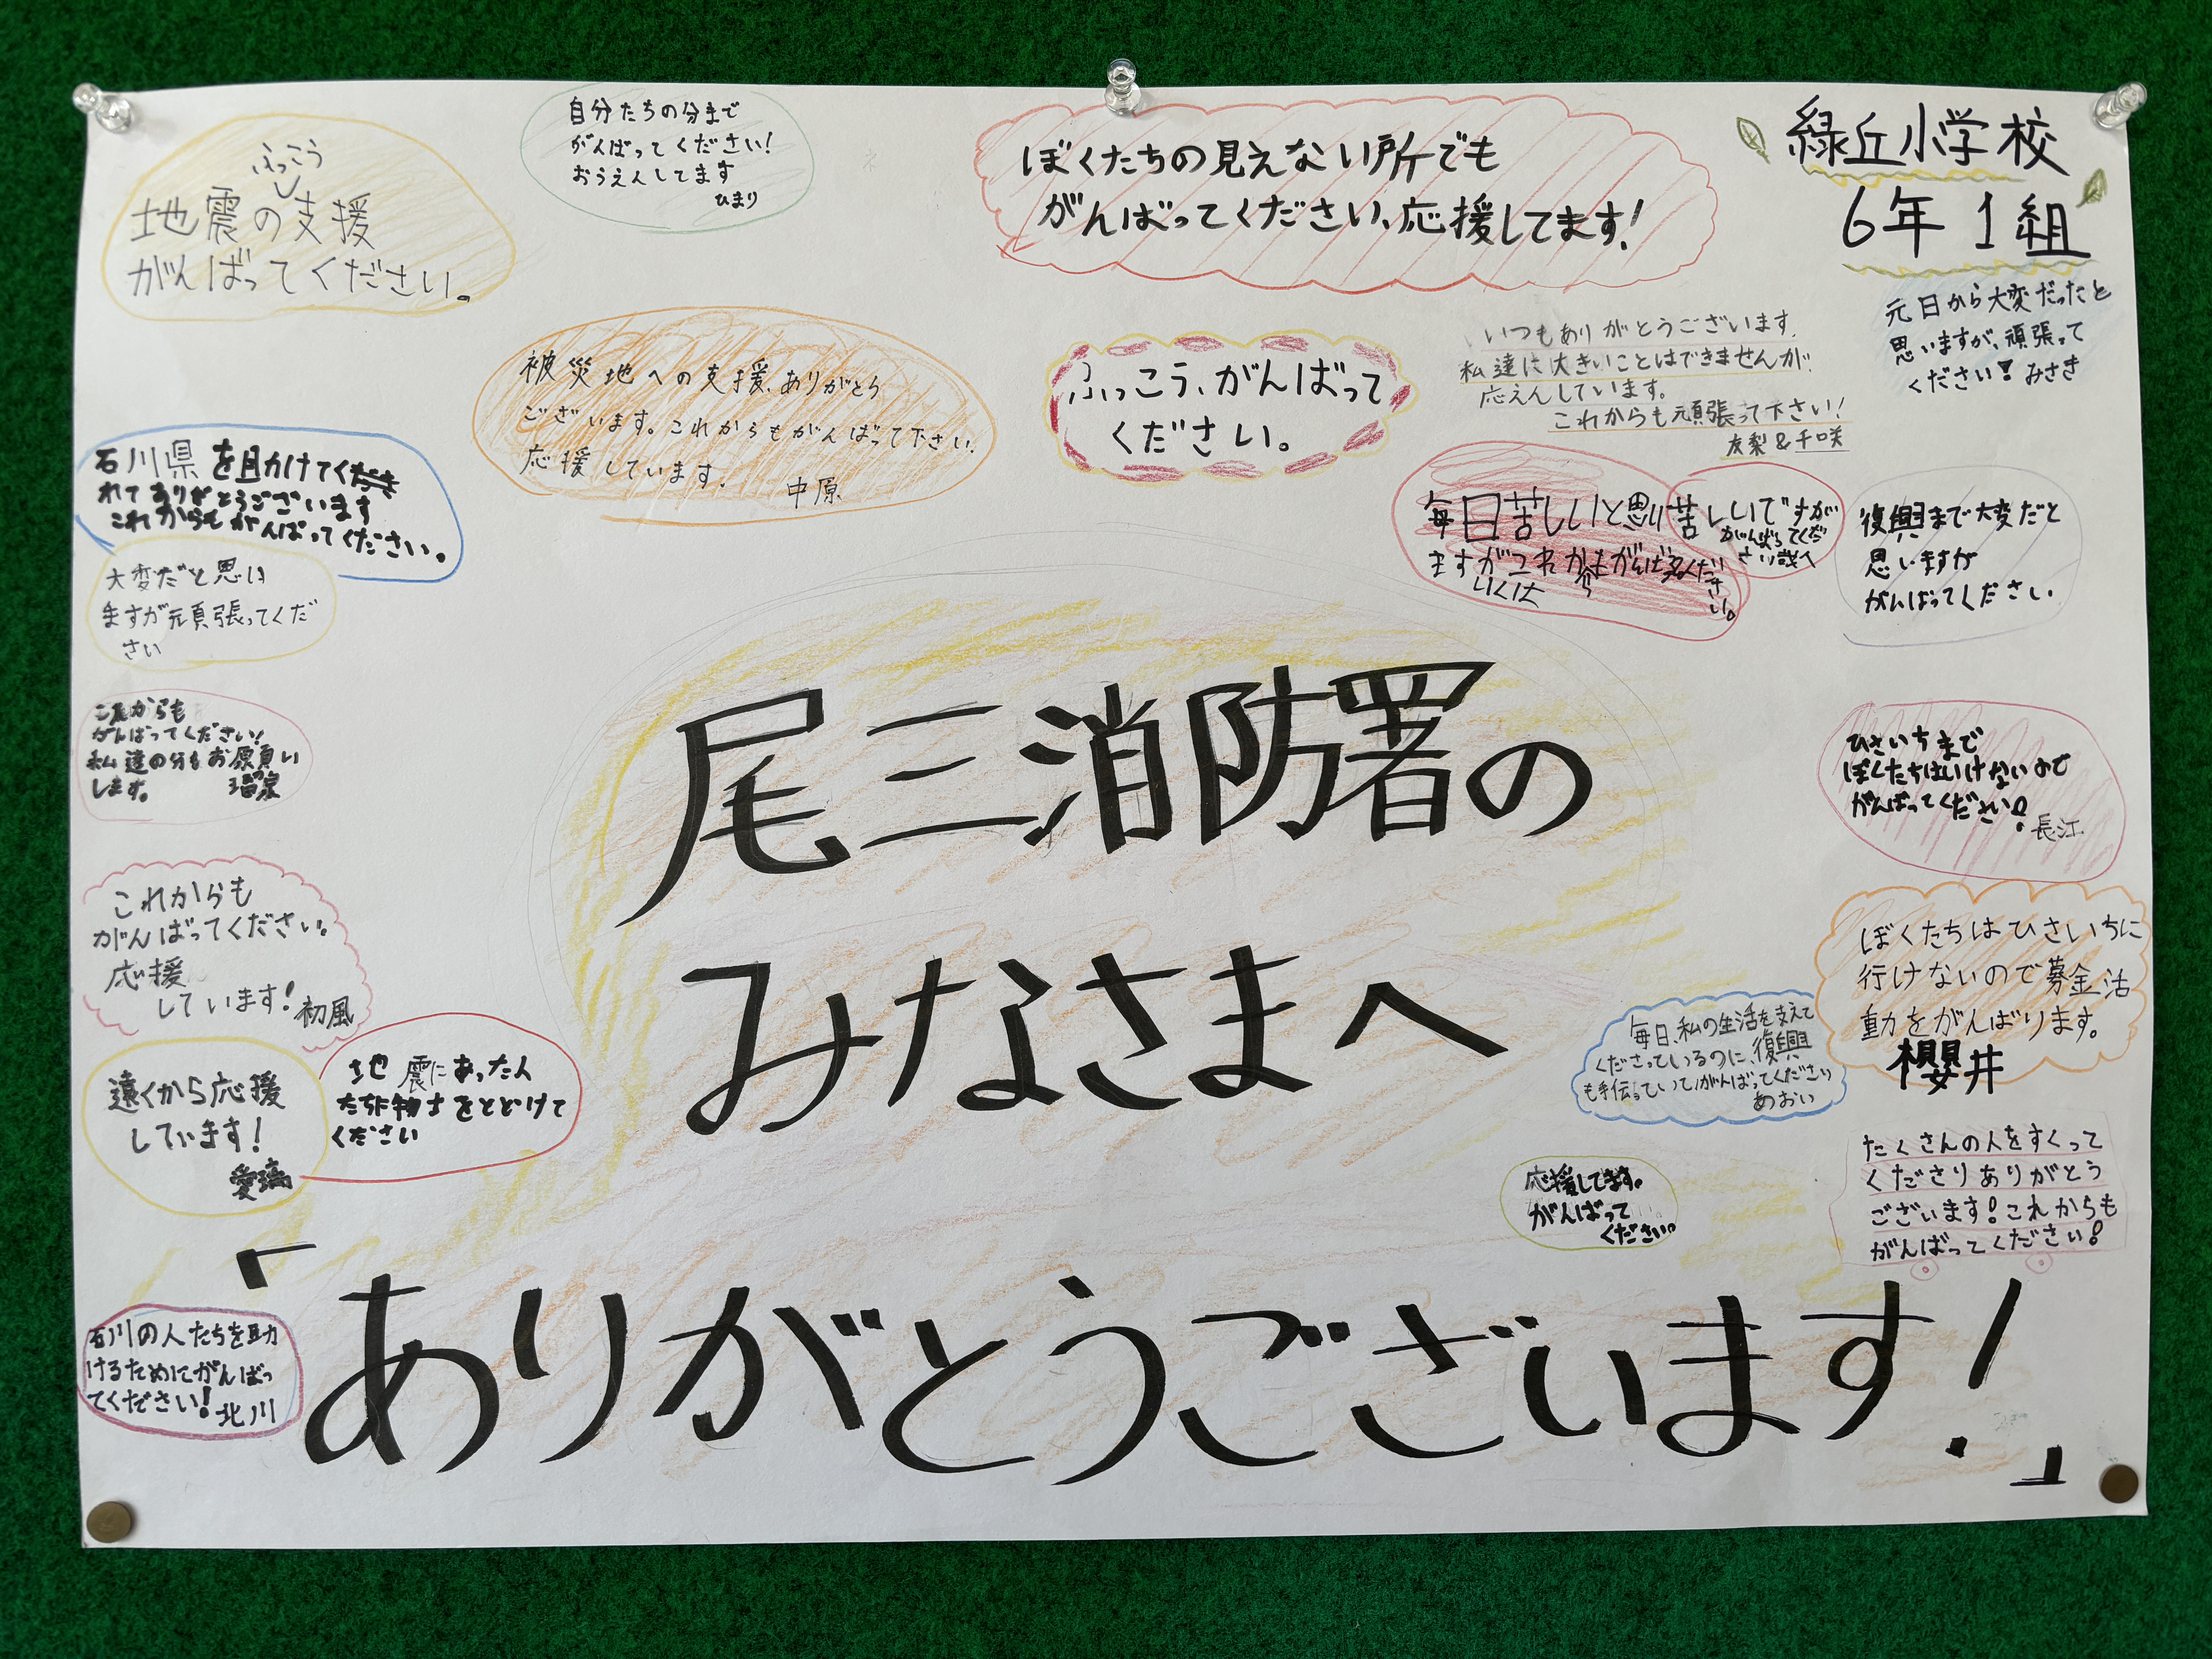 緑丘小学校
6年1組
ふっこう
地震の支援
がんばってください。
自分たちの分まで
がんばってください!
おうえんしてます
ひまり
ぼくたちの見えない所でも
がんばってください、応援してます!
元日から大変だったと
思いますが、頑張って
ください! みさき
いつもありがとうございます。
私達は大きいことはできませんが、
応えんしています。
これからも頑張って下さい!
友梨&千咲
被災地への支援、ありがとう
ございます。これからもがんばって下さい。
応援しています。 中原
ふっこう、がんばって
ください。
石川県を助けてくださ
れてありがとうございます
これからもがんばってください。
大変だと思い
ますが頑張ってくだ
さい
毎日苦しいと思い
ますがこれからもがんばって
苦しいですが
がんばってくだ
さい
復興まで大変だと
思いますが
がんばってください
これからも
がんばってください!
私達の分もお願い
します。
尾三消防署の
みなさまへ
「ありがとうございます!」
ひさいちまで
ぼくたちはいけないので
がんばってください!
長江
これからも
がんばってください。
応援
しています! 初風
ぼくたちはひさいちに
行けないので募金活
動をがんばります。
櫻井
毎日、私の生活を支えて
くださっているのに、復興
も手伝っていてがんばってください
あおい
遠くから応援
しています!
愛璃
地震にあった人
たちに物資をとどけて
ください
応援してます。
がんばって
ください。
たくさんの人をすくって
くださりありがとう
ございます!これからも
がんばってください!
石川の人たちを助
けるためにがんばっ
てください! 北川